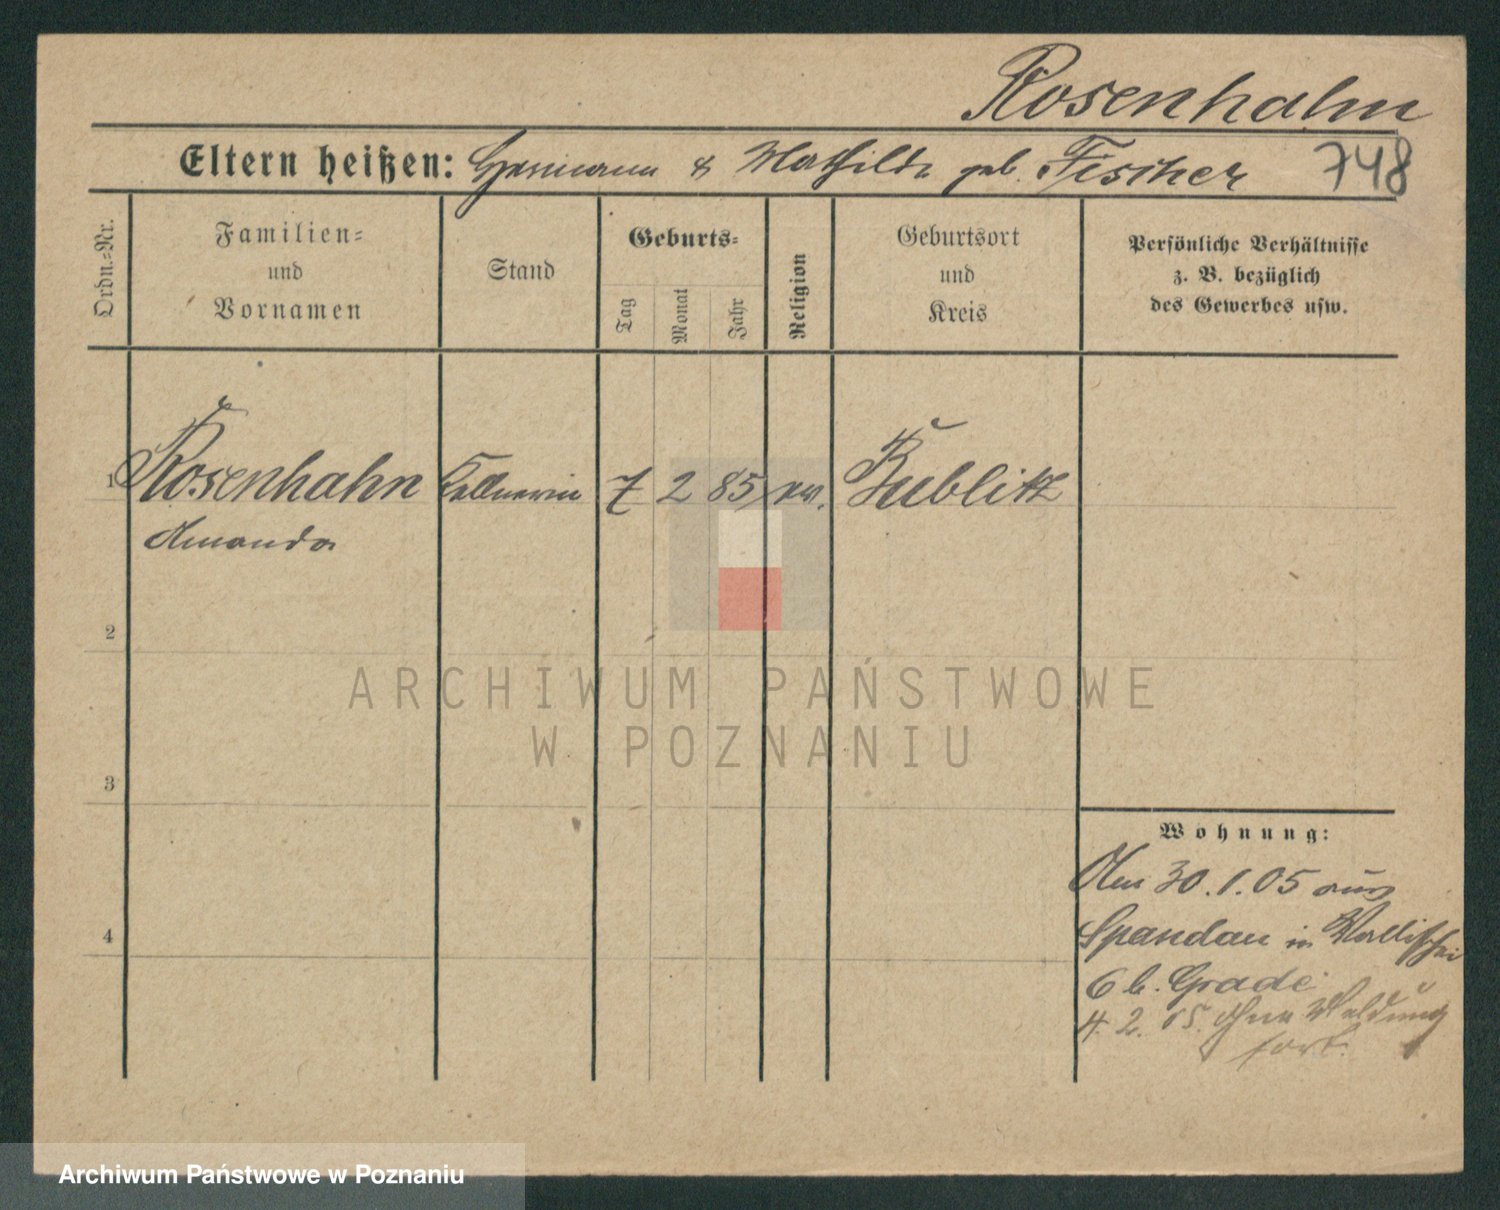 Rosenhahn
Eltern heißen: Hermann & Mathilde geb. Fischer 748
Ordn.-Nr.
Familien-
und
Vornamen
Stand
Geburts-
Tag
Monat
Jahr
Religion
Geburtsort
und
Kreis
Persönliche Verhältnisse
z. B. bezüglich
des Gewerbes usw.
1 Rosenhahn Kellnerin 7 2 85 ev. Bublitz
Amanda
2
3
4
Wohnung:
Am 30.1.05 aus
Spandau in Wallischei
6 b. Grade
4. 2. 05. ohne Meldung
fort.
ARCHIWUM PAŃSTWOWE
W POZNANIU
Archiwum Państwowe w Poznaniu